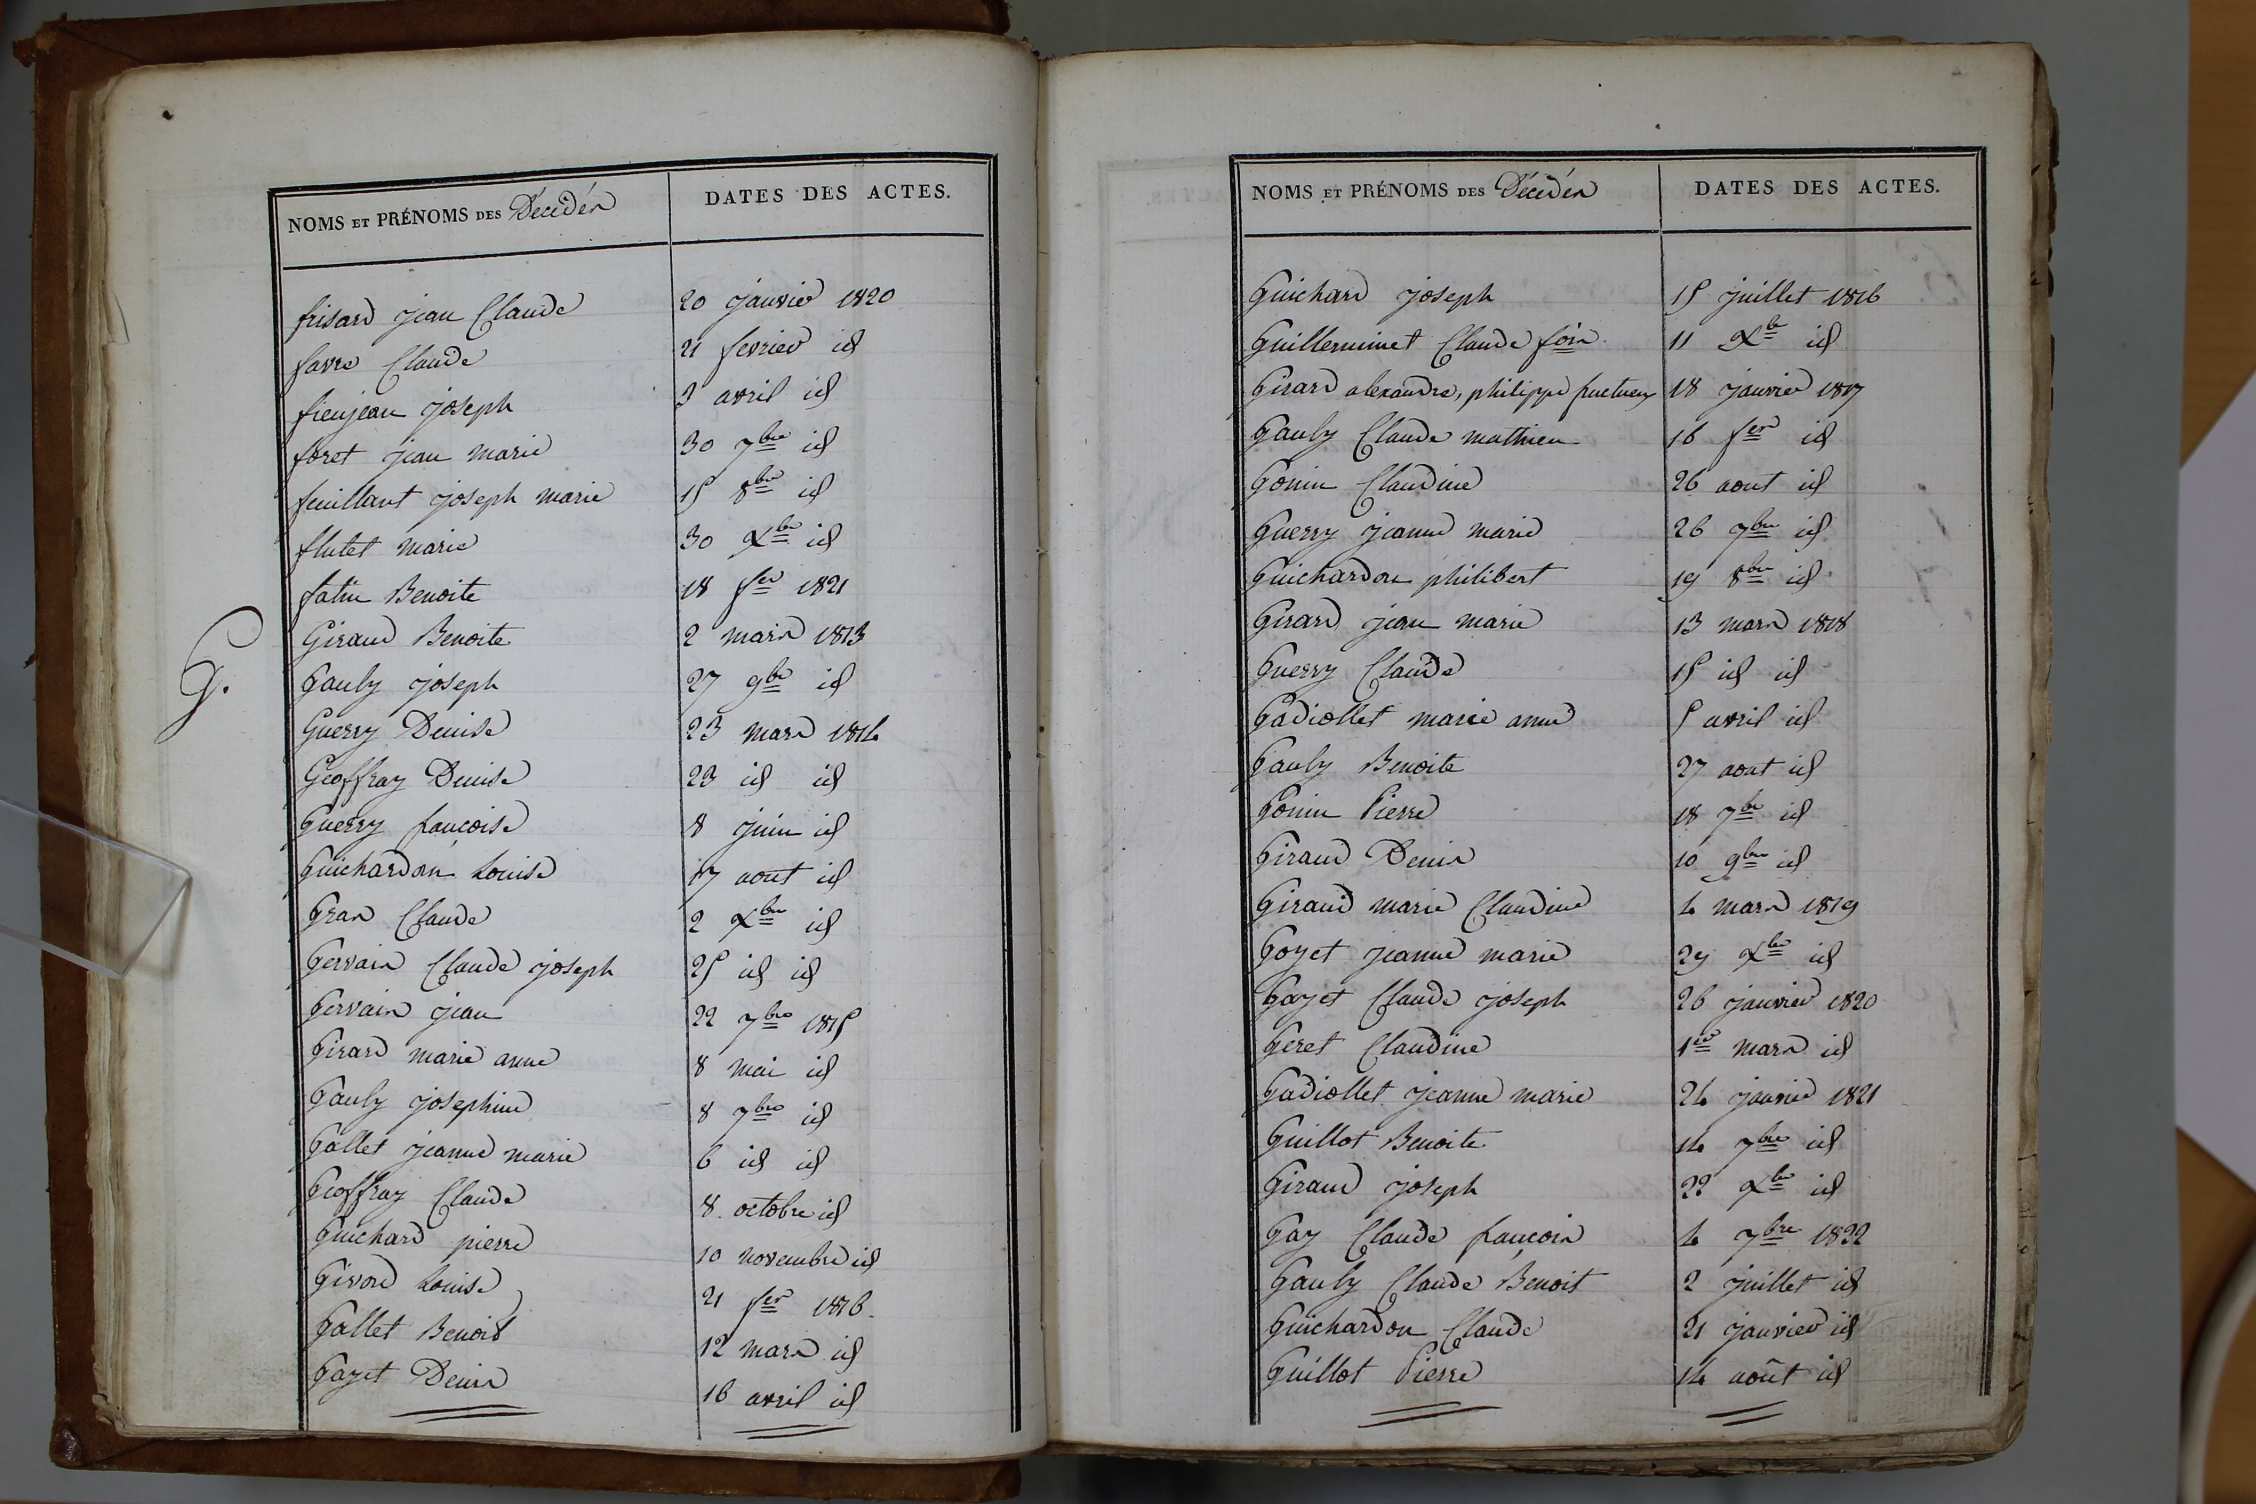 NOMS ET PRÉNOMS DES Décédés DATES DES ACTES.
frisard jean Claude 20 janvier 1820
favre Claude 21 fevrier id
fieujean joseph 3 avril id
foret jean marie 30 7bre id
feuillant joseph marie 15 8bre id
flutet marie 30 Xbre id
fatin Benoite 18 fer 1821
G.
Giraud Benoite 2 mars 1813
Gauly joseph 27 9bre id
Guerry Denise 23 mars 1814
Geoffray Denise 23 id id
Guerry françoise 8 juin id
Guichardon Louise 17 aout id
Gras Claude 2 Xbre id
Gervais Claude joseph 25 id id
Gervais jean 22 7bre 1815
Girard marie anne 8 mai id
Gauly josephine 8 7bre id
Gallet jeanne marie 6 id id
Geoffray Claude 8 octobre id
Guichard pierre 10 novembre id
Givord Louise 21 fer 1816.
Gallet Benoit 12 mars id
Gayet Denis 16 avril id
NOMS ET PRÉNOMS DES Décédés DATES DES ACTES.
Guichard joseph 15 juillet 1816
Guilleminet Claude fois 11 Xbre id
Girard alexandre, philippe fructueux 18 janvier 1817
Gauly Claude mathieu 16 fer id
Gonin Claudine 26 aout id
Guerry jeanne marie 26 7bre id
Guichardon philibert 19 8bre id
Girard jean marie 13 mars 1818
Guerry Claude 15 id id
Gadiollet marie anne 5 avril id
Gauly Benoite 27 aout id
Gonin Pierre 18 7bre id
Giraud Denis 10 9bre id
Giraud marie Claudine 4 mars 1819
Goyet jeanne marie 29 Xbre id
Gayet Claude joseph 26 janvier 1820
Geret Claudine 1er mars id
Gadiollet jeanne marie 24 janvier 1821
Guillot Benoite 14 7bre id
Giraud joseph 22 Xbre id
Gay Claude françois 4 7bre 1822
Gauly Claude Benoit 2 juillet id
Guichardon Claude 21 janvier id
Guillot Pierre 14 août id